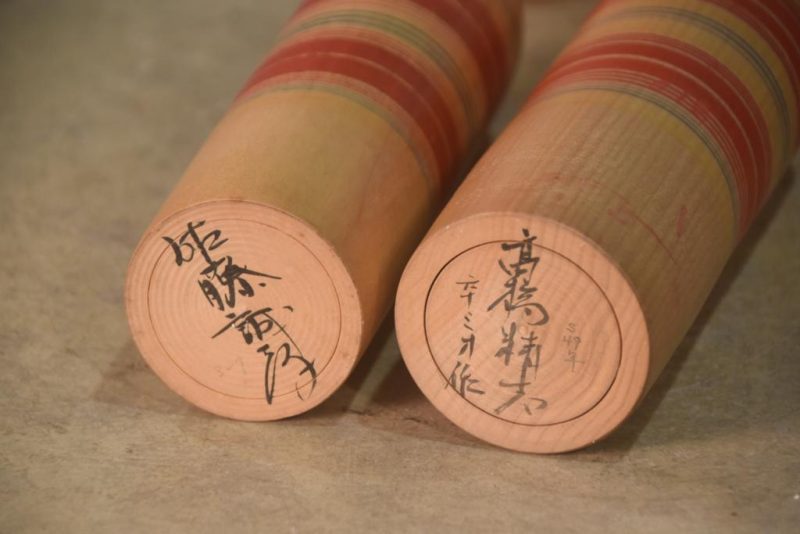 佐藤誠孝
高橋精志
六十三才作
S49年